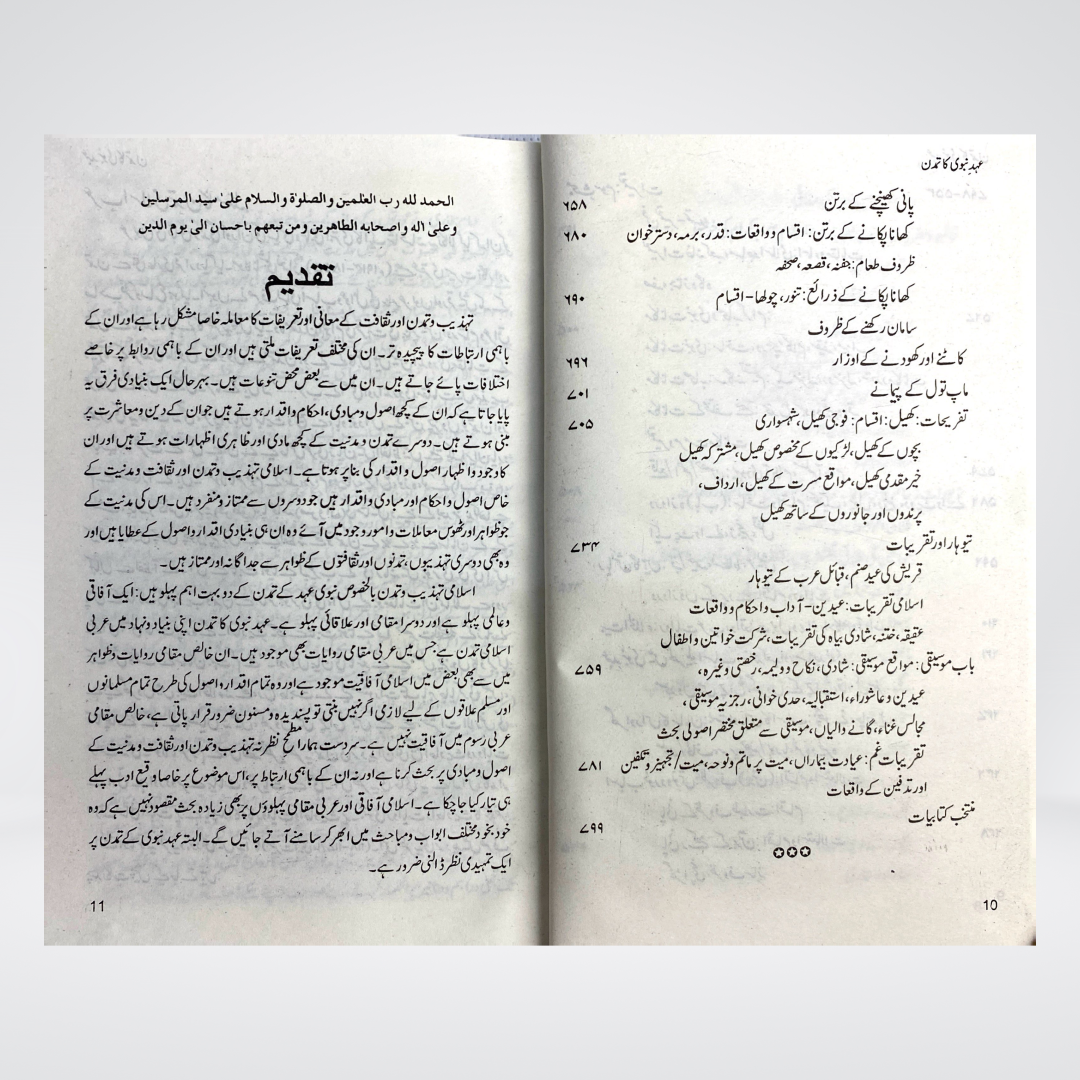 عہدِ نبوی کا تمدن
پانی کھینچنے کے برتن ۶۵۸
کھانا پکانے کے برتن: اقسام و واقعات: قدر، برمہ، دستر خوان ۶۸۰
ظروف طعام: جفنہ، قصعہ، صحفہ
کھانا پکانے کے ذرائع: تنور، چولھا-اقسام ۶۹۰
سامان رکھنے کے ظروف
کاٹنے اور کھودنے کے اوزار ۶۹۶
ماپ تول کے پیمانے ۷۰۱
تفریحات: کھیل: اقسام: فوجی کھیل، شہسواری ۷۰۵
بچوں کے کھیل، لڑکیوں کے مخصوص کھیل، مشترکہ کھیل
خیر مقدمی کھیل، مواقع مسرت کے کھیل، ارداف،
پرندوں اور جانوروں کے ساتھ کھیل
تیوہار اور تقریبات ۷۳۴
قریش کی عید صنم، قبائل عرب کے تیوہار
اسلامی تقریبات: عیدین-آداب و احکام و واقعات
عقیقہ، ختنہ، شادی بیاہ کی تقریبات، شرکت خواتین و اطفال
باب موسیقی: مواقع موسیقی: شادی، نکاح و ولیمہ، رخصتی وغیرہ، ۷۵۹
عیدین و عاشوراء، استقبالیہ، حدی خوانی، رجزیہ موسیقی،
مجالس غناء، گانے والیاں، موسیقی سے متعلق مختصر اصولی بحث
تقریبات غم: عیادت بیماراں، میت پر ماتم و نوحہ، میت/تجہیز و تکفین ۷۸۱
اور تدفین کے واقعات
منتخب کتابیات ۷۹۹
10
الحمد لله رب العٰلمين والصلوٰة والسلام علىٰ سيد المرسلين
وعلىٰ اله واصحابه الطاهرين ومن تبعهم باحسان الىٰ يوم الدين
تقدیم
تہذیب و تمدن اور ثقافت کے معانی اور تعریفات کا معاملہ خاصا مشکل رہا ہے اور ان کے
باہمی ارتباطات کا پیچیدہ تر۔ ان کی مختلف تعریفات ملتی ہیں اور ان کے باہمی روابط پر خاصے
اختلافات پائے جاتے ہیں۔ ان میں سے بعض محض تنوعات ہیں۔ بہر حال ایک بنیادی فرق یہ
پایا جاتا ہے کہ ان کے کچھ اصول و مبادی، احکام و اقدار ہوتے ہیں جو ان کے دین و معاشرت پر
مبنی ہوتے ہیں۔ دوسرے تمدن و مدنیت کے کچھ مادی اور ظاہری اظہارات ہوتے ہیں اور ان
کا وجود و اظہار اصول و اقدار کی بنا پر ہوتا ہے۔ اسلامی تہذیب و تمدن اور ثقافت و مدنیت کے
خاص اصول و احکام اور مبادی و اقدار ہیں جو دوسروں سے ممتاز و منفرد ہیں۔ اس کی مدنیت کے
جو ظواہر اور ٹھوس معاملات و امور وجود میں آئے وہ ان ہی بنیادی اقدار و اصول کے عطایا ہیں اور
وہ بھی دوسری تہذیبوں، تمدنوں اور ثقافتوں کے ظواہر سے جداگانہ اور ممتاز ہیں۔
اسلامی تہذیب و تمدن بالخصوص نبوی عہد کے تمدن کے دو بہت اہم پہلو ہیں: ایک آفاقی
و عالمی پہلو ہے اور دوسرا مقامی اور علاقائی پہلو ہے۔ عہد نبوی کا تمدن اپنی بنیاد و نہاد میں عربی
اسلامی تمدن ہے جس میں عربی مقامی روایات بھی موجود ہیں۔ ان خالص مقامی روایات و ظواہر
میں سے بھی بعض میں اسلامی آفاقیت موجود ہے اور وہ تمام اقدار و اصول کی طرح تمام مسلمانوں
اور مسلم علاقوں کے لیے لازمی اگر نہیں بنتی تو پسندیدہ و مسنون ضرور قرار پاتی ہے، خالص مقامی
عربی رسوم میں آفاقیت نہیں ہے۔ سر دست ہمارا مطمح نظر نہ تہذیب و تمدن اور ثقافت و مدنیت کے
اصول و مبادی پر بحث کرنا ہے اور نہ ان کے باہمی ارتباط پر، اس موضوع پر خاصا وقیع ادب پہلے
ہی تیار کیا جا چکا ہے۔ اسلامی آفاقی اور عربی مقامی پہلوؤں پر بھی زیادہ بحث مقصود نہیں ہے کہ وہ
خود بخود مختلف ابواب و مباحث میں ابھر کر سامنے آتے جائیں گے۔ البتہ عہد نبوی کے تمدن پر
ایک تمہیدی نظر ڈالنی ضرور ہے۔
11